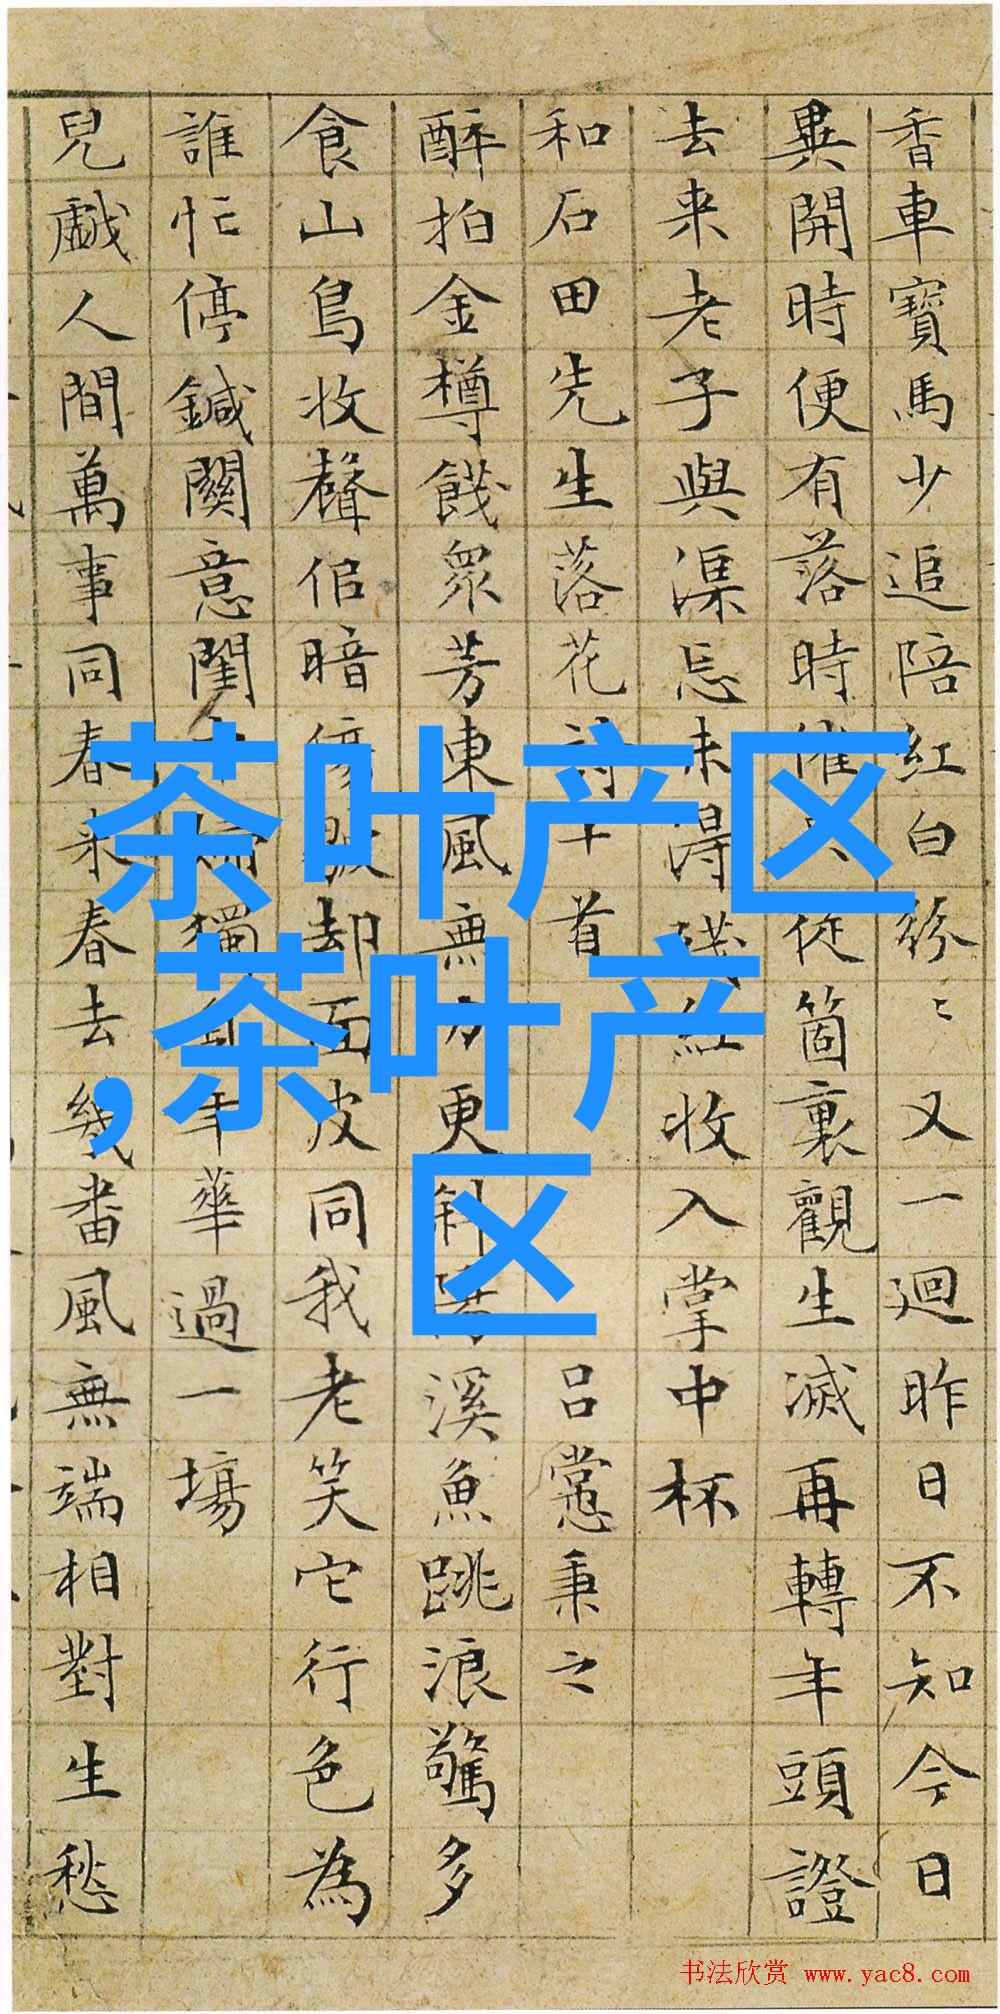 香車寶馬少追陪紅白紛〻又一迴昨日不知今日
異開時便有落時催 從箇裏觀生滅再轉年頭證
去来老子與渠忘未得殘紅收入掌中杯
和石田先生落花詩十首 吕㦂秉之
醉拍金樽餞眾芳東風無力更斜陽溪魚跳浪驚多
食山鳥收聲佀暗傷 却面皮同我老笑它行色為
誰忙停鍼關意閨 婦獨 年華過一場
兒戲人間萬事同春来春去幾番風無端相對生愁
茶叶产区
,茶叶产
区
书法欣赏 www.yac8.com